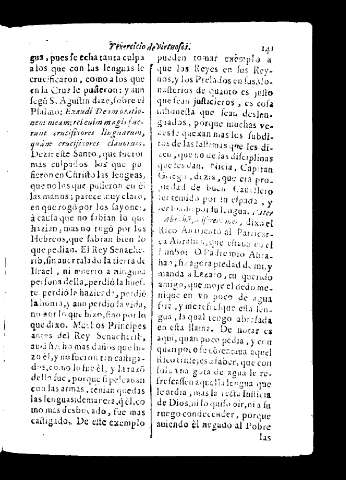 y exercicio de virtuosos. 141
gua, pues se echa tanta culpa
a los que con las lenguas le
crucificaron, como a los que
en la Cruz le pusieron: y aun
segũ S. Agustin dize, sobre el
Psalmo; Exaudi Deus oratio-
nem meam;
rant crucifixores linguarum,
quàm crucifixores clauorum.
Dezir este Santo, que fueron
mas culpados los que pu-
sieron en Christo las lenguas,
que no los que pusieron en èl
las manos; parece muy claro,
en que rogò por los sayones,
à causa que no sabian lo que
hazian, mas no rogò por los
Hebreos, que sabian bien lo
que pedian. El Rey Senache-
rib, sin auer talado la tierra de
Israel, ni muerto a ninguna
persona della, perdiò la hues-
te, perdiò la hazienda, perdiò
la honra, y aun perdiò la vida,
no por lo que hizo, sino por lo
que dixo. Muchos Principes
antes del Rey Senacherib,
auiã hecho mas daños que hi-
zo èl, y no fueron tan castiga-
dos, como lo fue èl, y la razõ
dello fue, porque si peleauan
con las armas, tenian quedas
las lenguas; de manera, q̃ èl, co-
mo mas desbocado, fue mas
castigado. De este exemplo
pueden tomar exemplo a
que los Reyes en sus Rey-
nos, y los Prelados en las Mo-
nasterios de quanto es justo
que sean justicieros, es cosa
inhonesta que sean deslen-
guados, porque muchas ve-
zes se quexan mas los subdi-
tos de las lastimas que les di-
cen, que no de las disciplinas
que les dan. Niçia, Capitan
Griego, dezia, que era pro-
piedad de buen Cauallero
ser temido por su espada, y
por su lengua. Pater
dixo el
Rico Auariento al Patriarc-
ca Abrahan, que estaua en el
Limbo: O Padre mio Abra-
han, si agora piedad de mi, y
manda a Lazaro, tu querido
amigo, que moje el dedo me-
ñique en vn poco de agua
fria, y me refresque esta len-
gua, la qual tengo abrasada
en esta llama. De notar es
aqui, quan poco pedia, y con
quan poco se contentaua aquel
rico triste, es a saber, que con
sola vna gota de agua le re-
frescassen aquella lengua que
le ardia, mas la recta justicia
de Dios, ni lo quiso oir, ni a su
ruego condecender, porque
auiendo èl negado al Pobre
las